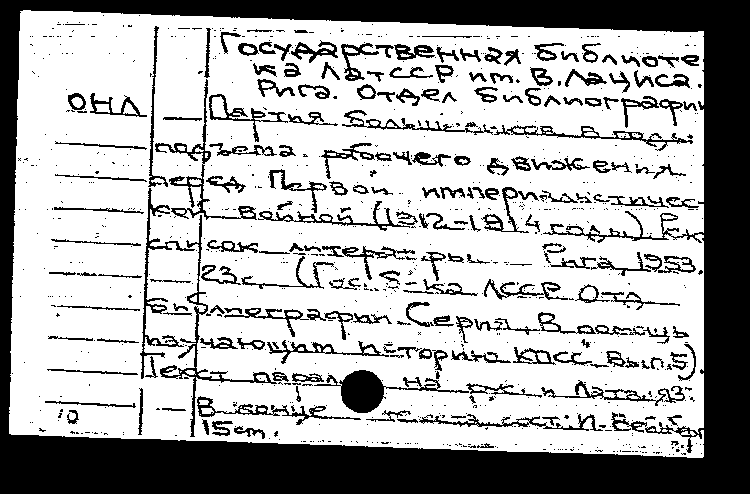 Государственная библиоте-
ка ЛатССР им. В. Лациса.
Рига. Отдел библиографии
ОНЛ
Партия большевиков в годы
подъема рабочего движения
перед Первой империалистичес-
кой войной (1912-1914 годы). Рек.
список литературы Рига, 1953.
23с. (Гос. б-ка ЛССР Отд
библиографии. Серия „В помощь
изучающим историю КПСС" Вып.5).
Текст парал на рус. и Латв. яз.
В конце текста сост: И.
10
15cm.